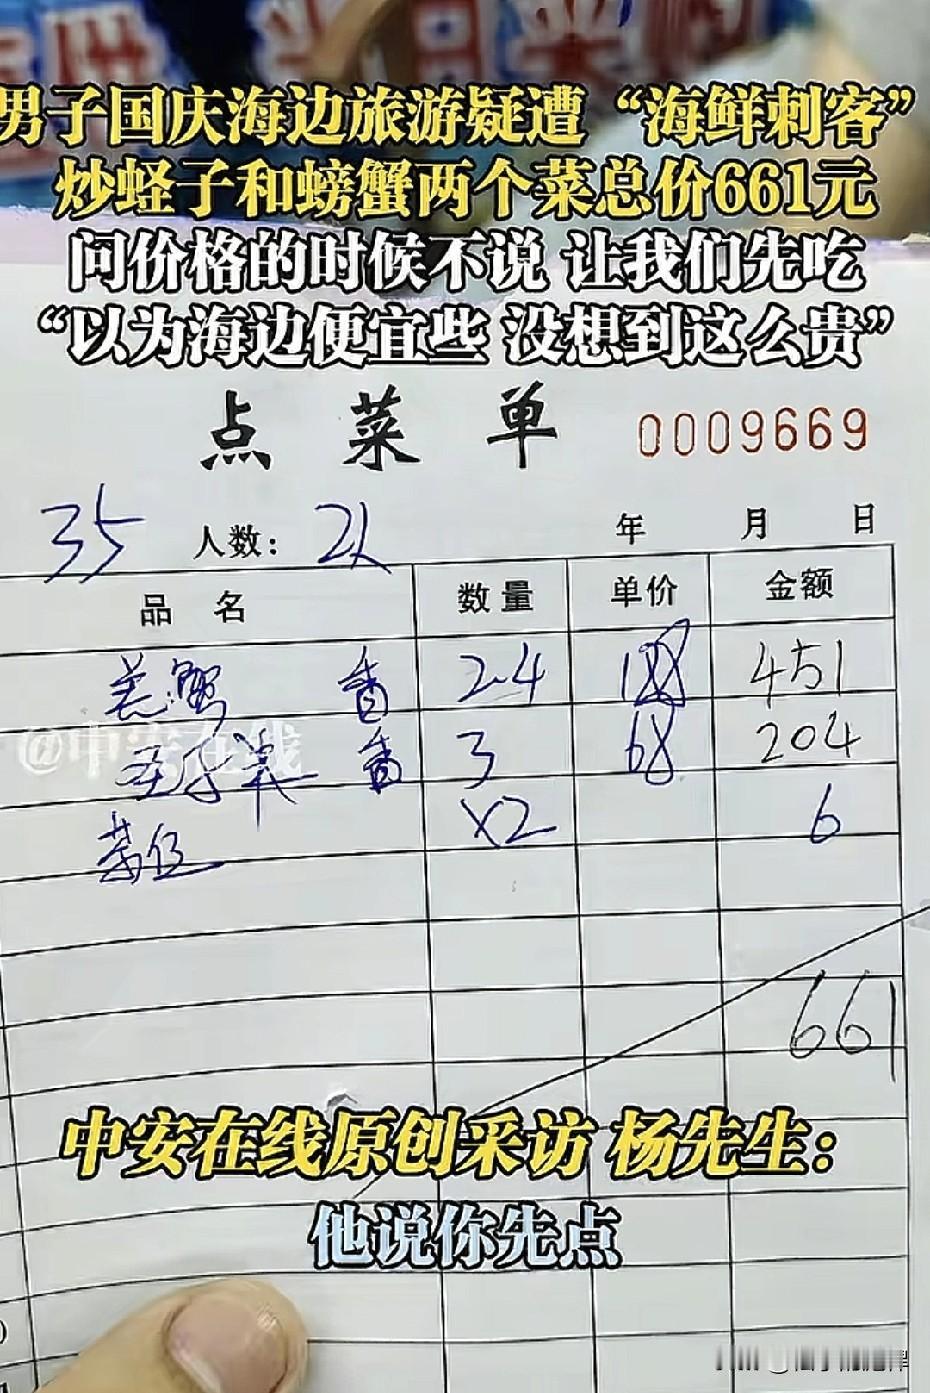 男子国庆海边旅游疑遭“海鲜刺客”
炒蛏子和螃蟹两个菜总价661元
问价格的时候不说 让我们先吃
“以为海边便宜些 没想到这么贵”
点菜单 0009669
35 人数： 2人 年 月 日
品名 数量 单价 金额
羔蟹 2.4 188 451
@中安在线
3 68 204
茶位 x2 6
661
中安在线原创采访 杨先生：
他说你先点